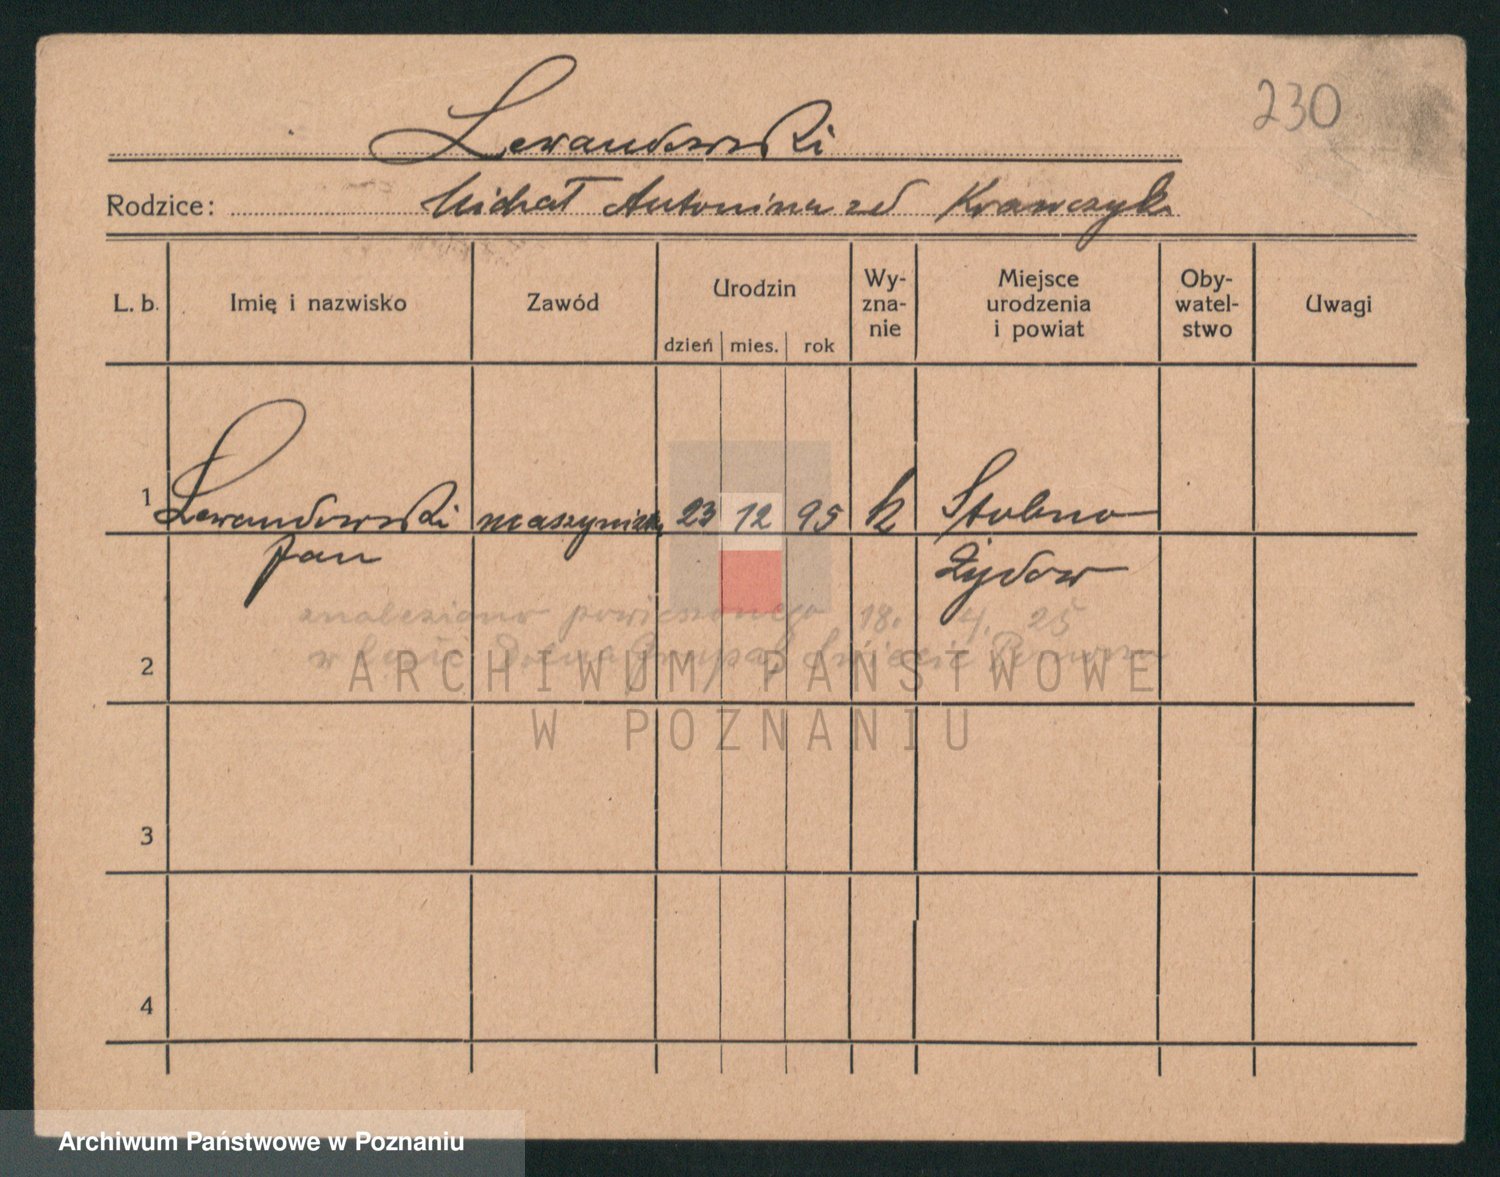 230
Lewandowski
Rodzice: Michał Antonina zd Krawczyk
L. b. Imię i nazwisko Zawód Urodzin dzień mies. rok Wy-zna-nie Miejsce urodzenia i powiat Oby-watel-stwo Uwagi
1 Lewandowski maszynista 23 12 95 k Stobno
Jan Żydow
znaleziono powieszonego 18. 4. 25
2 w lesie Dolna Grupa Świecie
3
4
ARCHIWUM PAŃSTWOWE
W POZNANIU
Archiwum Państwowe w Poznaniu